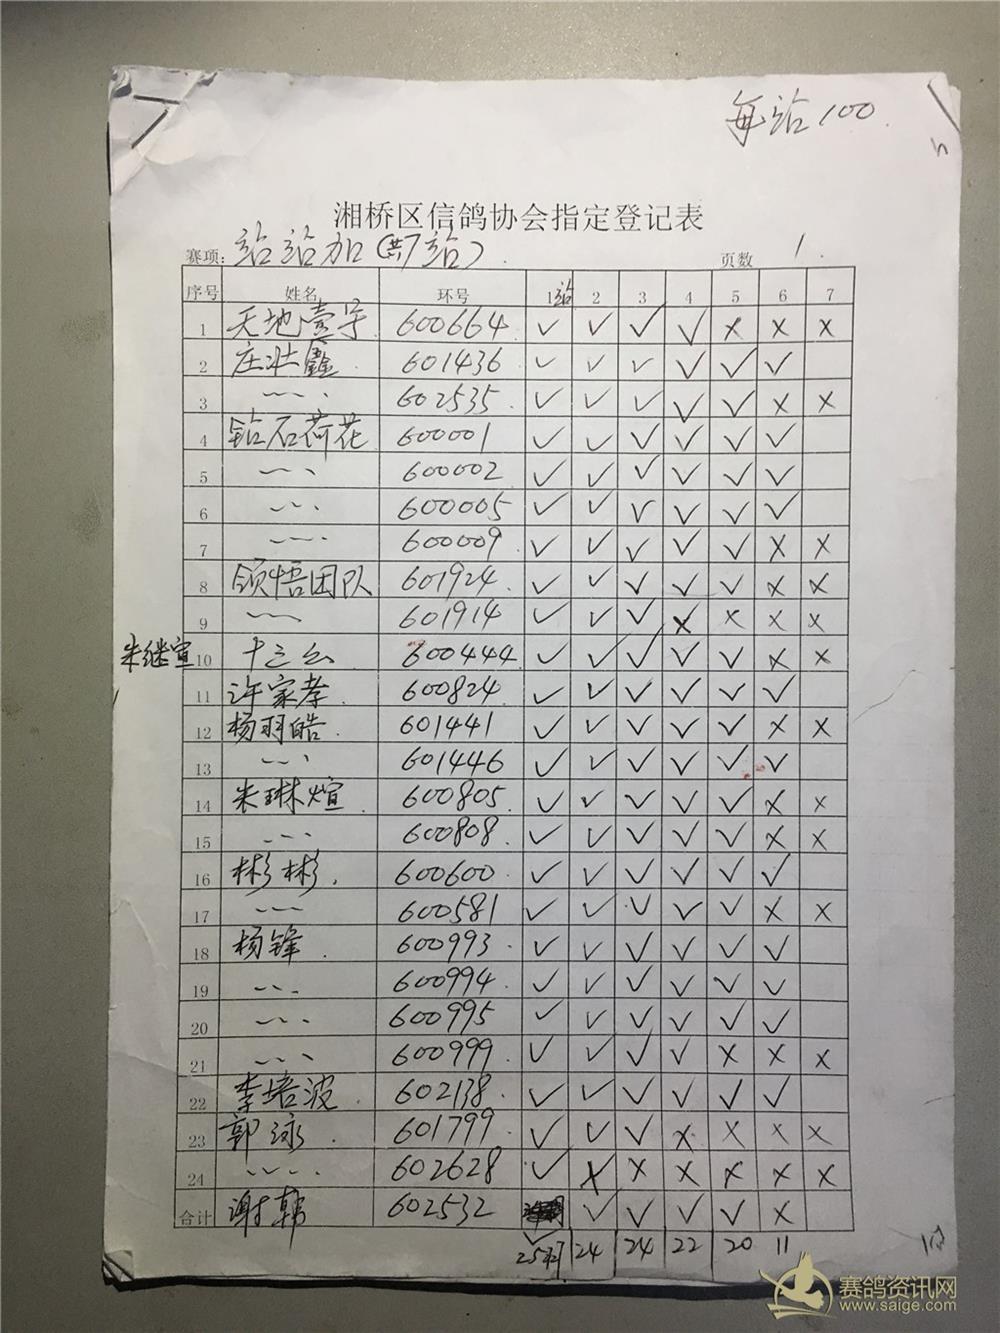 每站100.
湘桥区信鸽协会指定登记表
赛项: 站站加(共7站). 页数 1.
序号 姓名 环号 1站 2 3 4 5 6 7
1 天地壹宇 600664 ✓ ✓ ✓ ✓ × × ×
2 庄壮鑫 601436 ✓ ✓ ✓ ✓ ✓ ✓
3 〃 602535 ✓ ✓ ✓ ✓ ✓ × ×
4 钻石荷花 600001 ✓ ✓ ✓ ✓ ✓ ✓
5 〃 600002 ✓ ✓ ✓ ✓ ✓ ✓
6 〃 600005 ✓ ✓ ✓ ✓ ✓ ✓
7 〃 600009 ✓ ✓ ✓ ✓ ✓ × ×
8 领悟团队 601924 ✓ ✓ ✓ ✓ ✓ × ×
9 〃 601914 ✓ ✓ ✓ × × × ×
朱继宣 10 十三幺 600444 ✓ ✓ ✓ ✓ ✓ × ×
11 许家孝 600824 ✓ ✓ ✓ ✓ ✓ ✓
12 杨羽皓 601441 ✓ ✓ ✓ ✓ ✓ × ×
13 〃 601446 ✓ ✓ ✓ ✓ ✓ ✓
14 朱琳煊 600805 ✓ ✓ ✓ ✓ ✓ × ×
15 〃 600808 ✓ ✓ ✓ ✓ ✓ × ×
16 彬彬 600600 ✓ ✓ ✓ ✓ ✓ ✓
17 〃 600581 ✓ ✓ ✓ ✓ ✓ × ×
18 杨锋 600993 ✓ ✓ ✓ ✓ ✓ ✓
19 〃 600994 ✓ ✓ ✓ ✓ ✓ ✓
20 〃 600995 ✓ ✓ ✓ ✓ ✓ ✓
21 〃 600999 ✓ ✓ ✓ ✓ × × ×
22 李培波 602138 ✓ ✓ ✓ ✓ ✓ ✓
23 郭泳 601799 ✓ ✓ ✓ × × × ×
24 〃 602628 ✓ × × × × × ×
合计 谢韩 602532 ✓ ✓ ✓ ✓ ✓ ×
25羽 24 24 22 20 11
赛鸽资讯网
www.saige.com